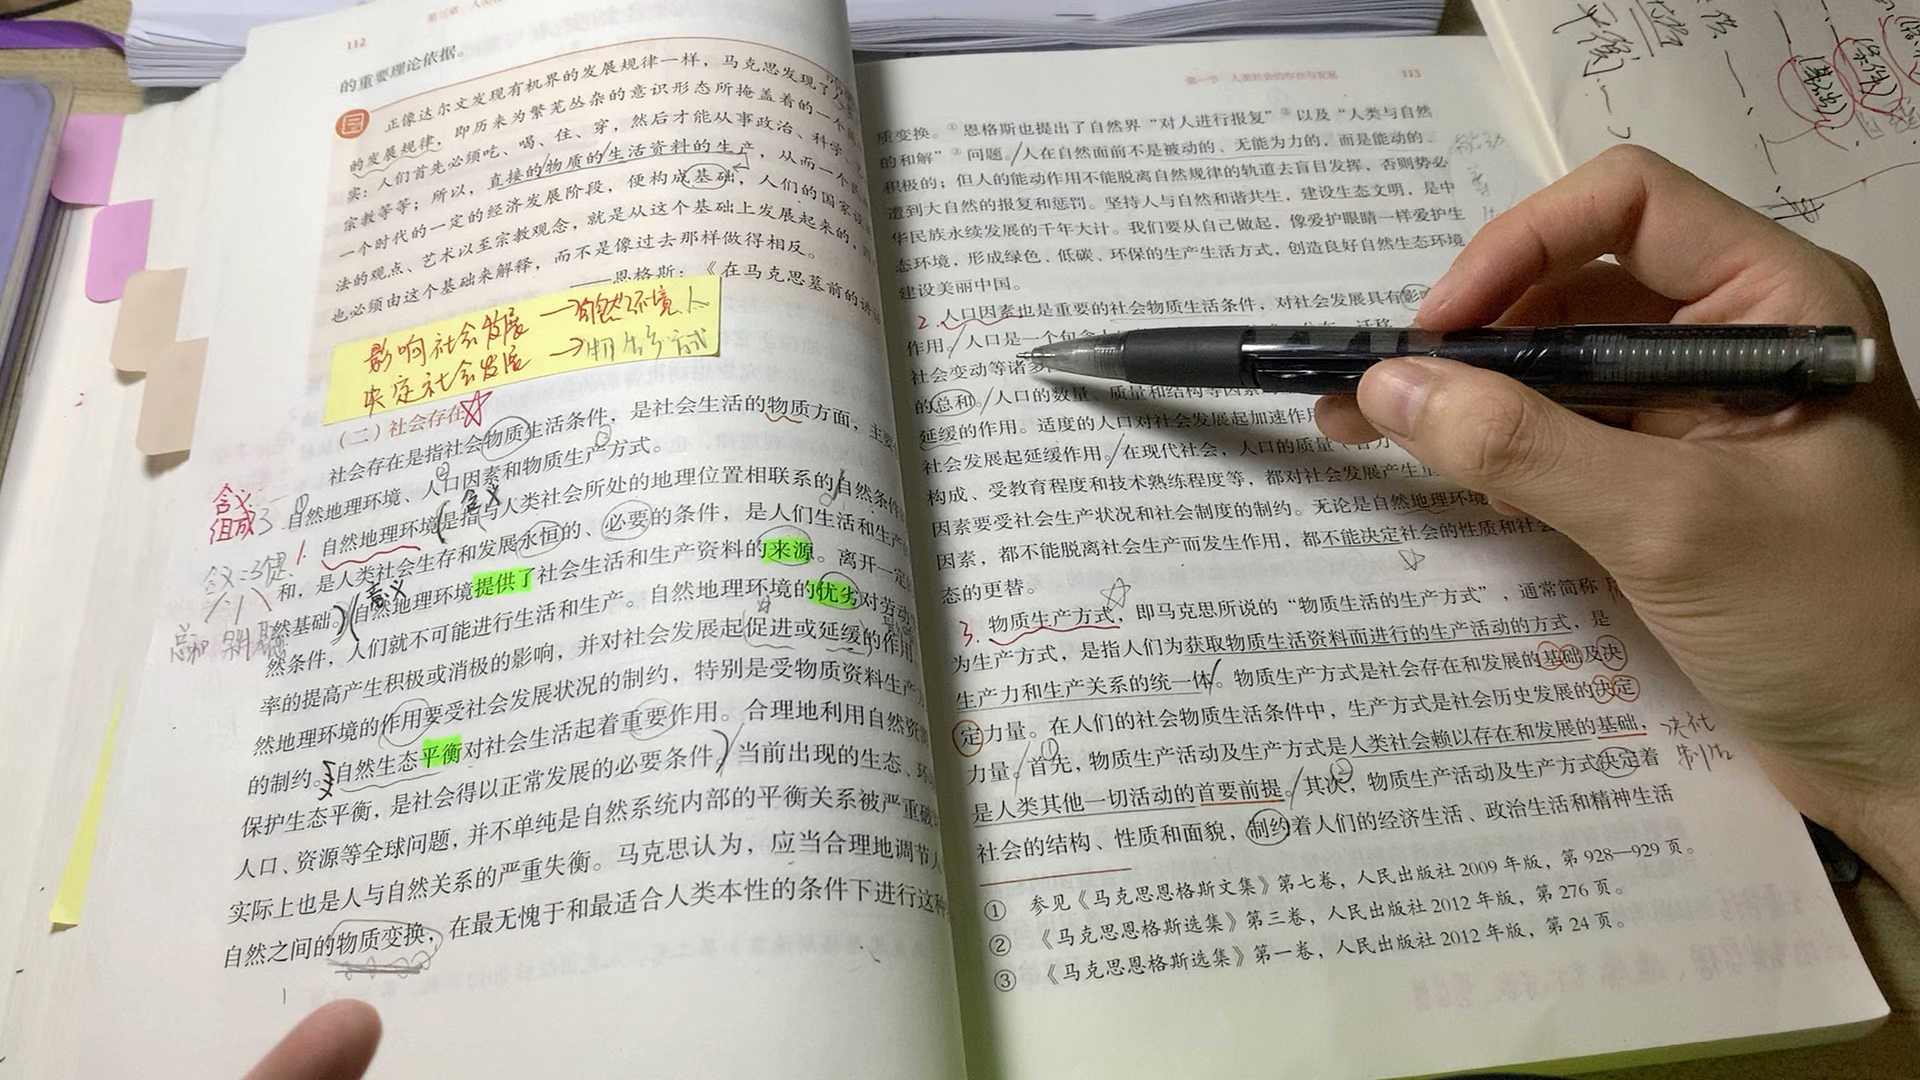 112
的重要理论依据。
正像达尔文发现有机界的发展规律一样，马克思发现了人
的发展规律，即历来为繁芜丛杂的意识形态所掩盖着的一个
实：人们首先必须吃、喝、住、穿，然后才能从事政治、科学、
宗教等等；所以，直接的物质的生活资料的生产，从而一个
一个时代的一定的经济发展阶段，便构成基础，人们的国家设
法的观点、艺术以至宗教观念，就是从这个基础上发展起来的，
也必须由这个基础来解释，而不是像过去那样做得相反。
——恩格斯：《在马克思墓前的讲
影响社会发展→自然环境 人
决定社会发展→
（二）社会存在
社会存在是指社会物质生活条件，是社会生活的物质方面，主要
自然地理环境、人口因素和物质生产方式。
含义
组成3
1. 自然地理环境是指与人类社会所处的地理位置相联系的自然条件
和，是人类社会生存和发展永恒的、必要的条件，是人们生活和生产
然基础。自然地理环境提供了社会生活和生产资料的来源。离开一定
然条件，人们就不可能进行生活和生产。自然地理环境的优劣对劳动
率的提高产生积极或消极的影响，并对社会发展起促进或延缓的作用
然地理环境的作用要受社会发展状况的制约，特别是受物质资料生产
的制约。自然生态平衡对社会生活起着重要作用。合理地利用自然资
保护生态平衡，是社会得以正常发展的必要条件。当前出现的生态、环
人口、资源等全球问题，并不单纯是自然系统内部的平衡关系被严重破
实际上也是人与自然关系的严重失衡。马克思认为，应当合理地调节人
自然之间的物质变换，在最无愧于和最适合人类本性的条件下进行这种
第一节 人类社会的存在与发展 113
质变换。①恩格斯也提出了自然界“对人进行报复”②以及“人类与自然
的和解”③问题。人在自然面前不是被动的、无能为力的，而是能动的、
积极的；但人的能动作用不能脱离自然规律的轨道去盲目发挥，否则势必
遭到大自然的报复和惩罚。坚持人与自然和谐共生，建设生态文明，是中
华民族永续发展的千年大计。我们要从自己做起，像爱护眼睛一样爱护生
态环境，形成绿色、低碳、环保的生产生活方式，创造良好自然生态环境
建设美丽中国。
2. 人口因素也是重要的社会物质生活条件，对社会发展具有影
作用。人口是一个包含
社会变动等诸多
的总和。人口的数量、质量和结构等因素
延缓的作用。适度的人口对社会发展起加速作用
社会发展起延缓作用。在现代社会，人口的质量
构成、受教育程度和技术熟练程度等，都对社会发展产生重
因素要受社会生产状况和社会制度的制约。无论是自然地理环境
因素，都不能脱离社会生产而发生作用，都不能决定社会的性质和社会
态的更替。
3. 物质生产方式，即马克思所说的“物质生活的生产方式”，通常简称
为生产方式，是指人们为获取物质生活资料而进行的生产活动的方式，是
生产力和生产关系的统一体。物质生产方式是社会存在和发展的基础及决
定力量。在人们的社会物质生活条件中，生产方式是社会历史发展的决定
力量。首先，物质生产活动及生产方式是人类社会赖以存在和发展的基础，
是人类其他一切活动的首要前提。其次，物质生产活动及生产方式决定着
社会的结构、性质和面貌，制约着人们的经济生活、政治生活和精神生活
① 参见《马克思恩格斯文集》第七卷，人民出版社2009年版，第928—929页。
② 《马克思恩格斯选集》第三卷，人民出版社2012年版，第276页。
③ 《马克思恩格斯选集》第一卷，人民出版社2012年版，第24页。